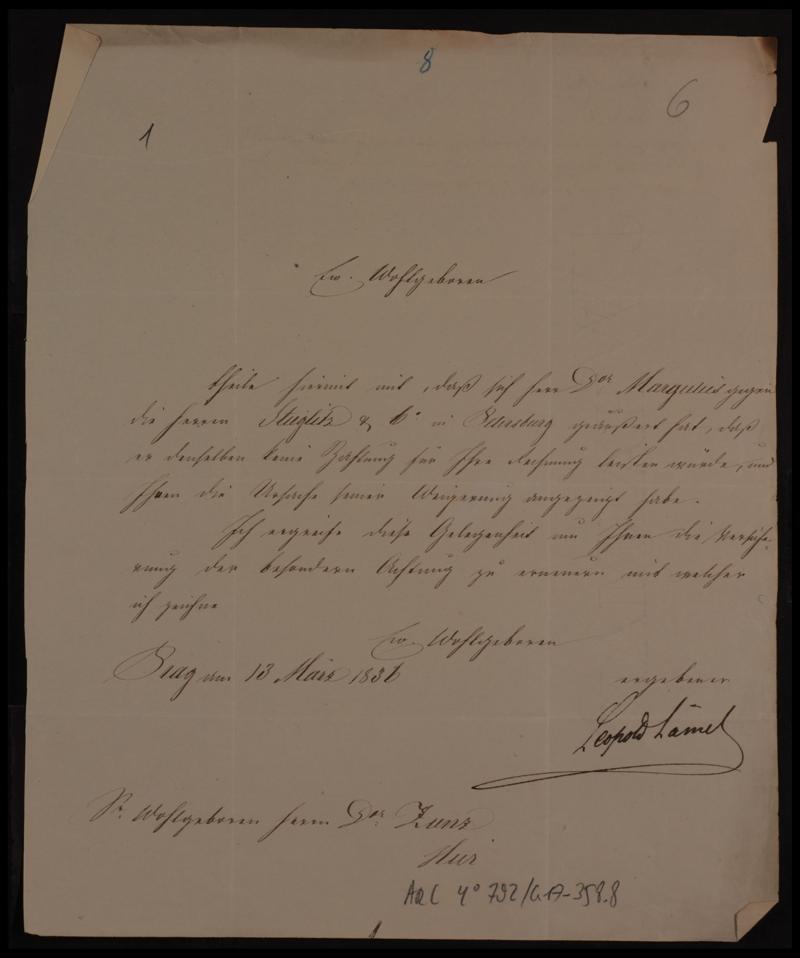 8
6
1
Ew. Wohlgeboren
theile hiermit mit, daß sich Herr Dor Margulies gegen
die Herrn Stieglitz & Co in Petersburg geäußert hat, daß
er denselben keine Zahlung für Ihre Rechnung leisten würde, und
Ihnen die Ursache seiner Weigerung angezeigt habe.
Ich ergreife diese Gelegenheit um Ihnen die Versiche-
rung der besondern Achtung zu erneuern mit welcher
ich zeichne
Ew. Wohlgeboren
Prag am 13 März 1836
ergebener
Leopold Lämel
Sr. Wohlgeboren Herrn Dor Zunz
Hier
ARC 4° 792/G17-358.8